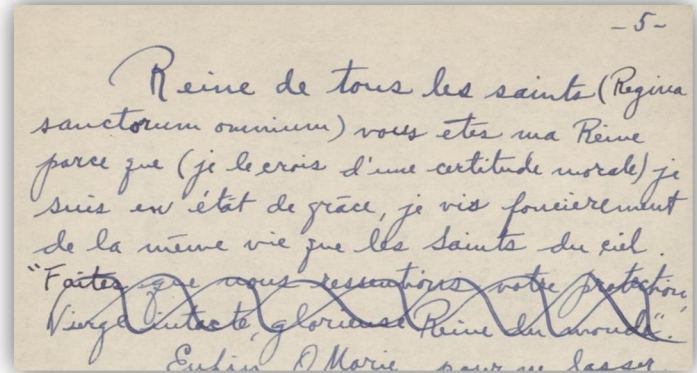 -5-
Reine de tous les saints (Regina
sanctorum omnium) vous etes ma Reine
parce que (je le crois d'une certitude morale) je
suis en état de grâce, je vis foncièrement
de la même vie que les Saints du ciel.
"Faites que nous ressentions votre protection,
Vierge intacte, glorieuse Reine du monde".
Enfin, O Marie, pour ne lasser